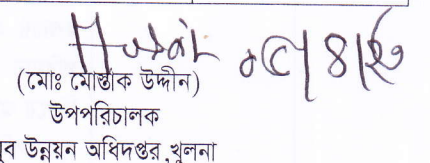 (মোঃ মোস্তাক উদ্দীন)
উপপরিচালক
ব উন্নয়ন অধিদপ্তর, খুলনা